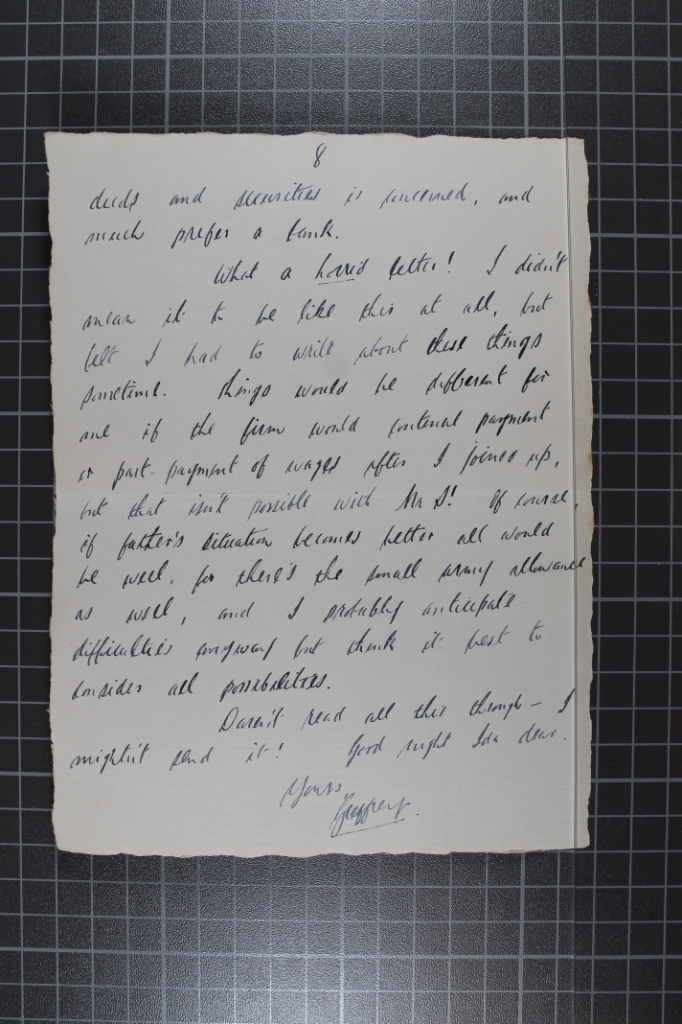 8
deeds and securities is concerned, and
much prefer a bank.
What a horrid letter! I didn't
mean it to be like this at all, but
felt I had to write about these things
sometime. Things would be different for
me if the firm would continue payment
or part-payment of wages after I joined up,
but that isn't possible with Mr S! Of course,
if father's situation becomes better all would
be well, for there's the small army allowance
as well, and I probably anticipate
difficulties anyway but think it best to
consider all possibilities.
Daren't read all this through – I
mightn't send it! Good night Ida dear.
Yours
Geoffrey.